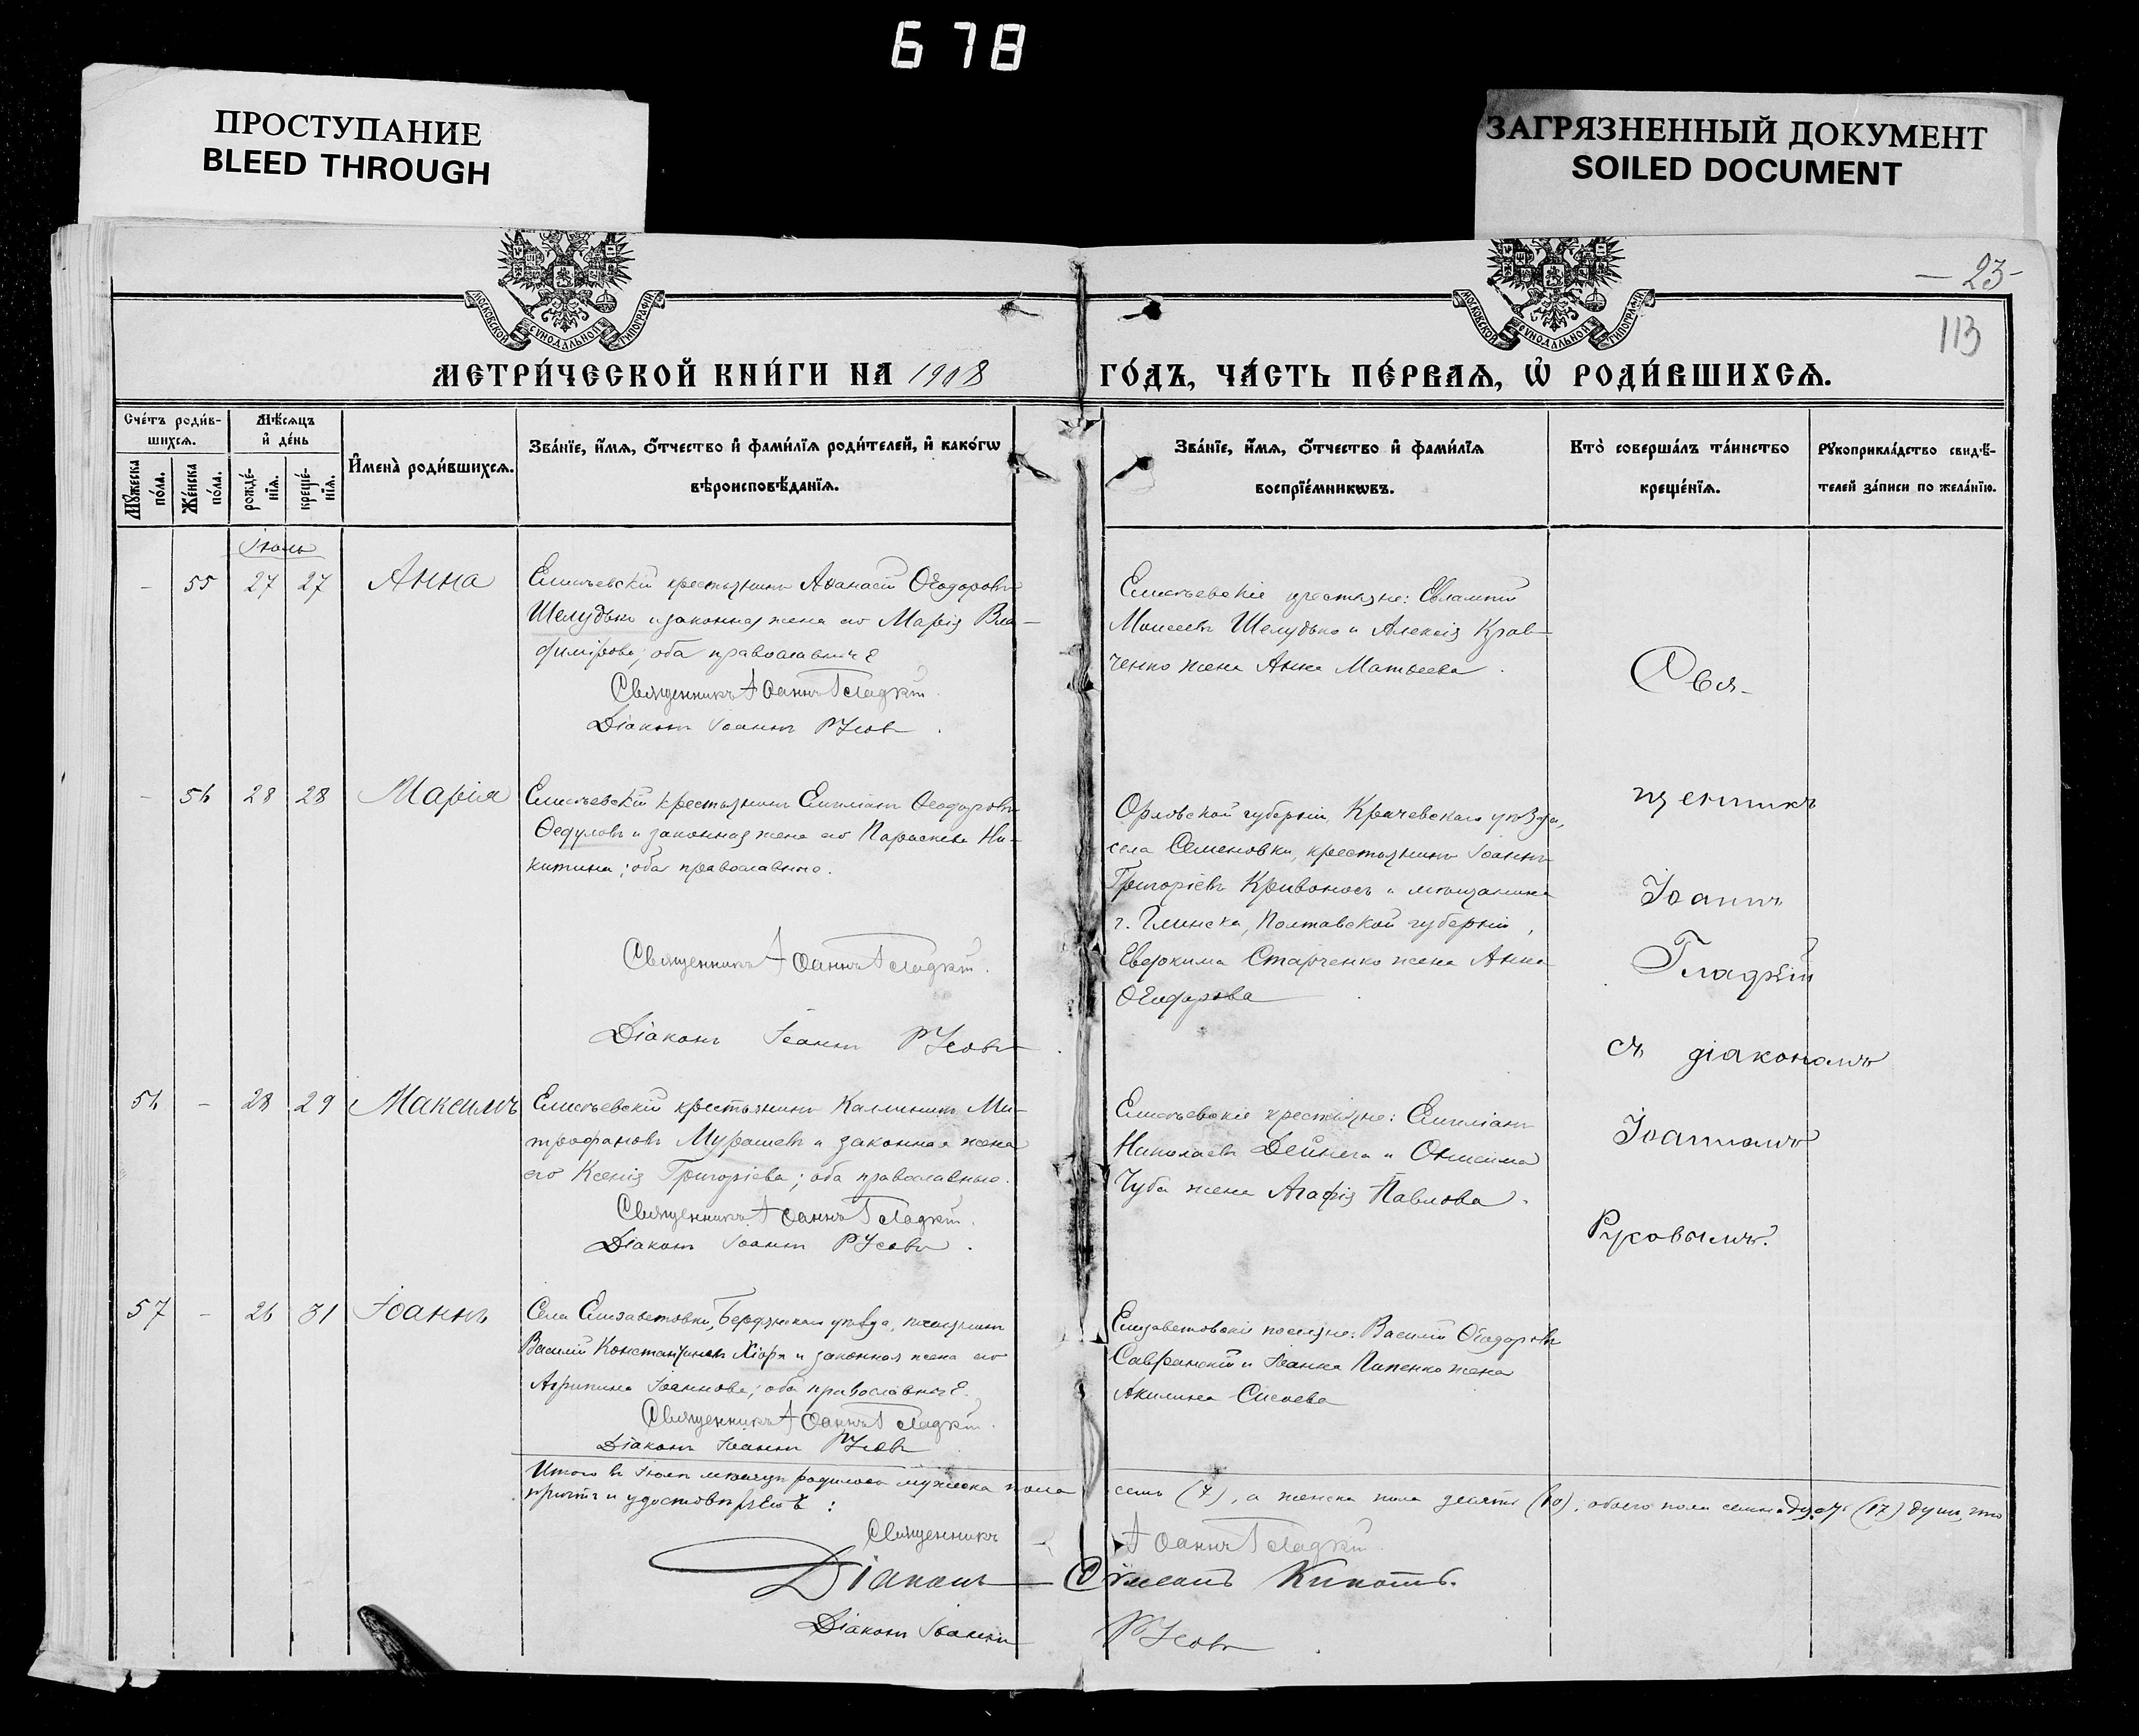 678
ПРОСТУПАНИЕ
BLEED THROUGH
ЗАГРЯЗНЕННЫЙ ДОКУМЕНТ
SOILED DOCUMENT
МОСКОВСКОЙ СѴНОДАЛЬНОЙ ТИПОГРАФІИ
МОСКОВСКОЙ СѴНОДАЛЬНОЙ ТИПОГРАФІИ
— 23 -
113
МЕТРИ́ЧЕСКОЙ КНИ́ГИ НА 1908 ГО́ДЪ, ЧА́СТЬ ПЕ́РВАѦ, Ѡ РОДИ́ВШИХСѦ.
Сче́тъ роди́в-
шихсѧ.
Мѣ́сѧцъ
и҆ де́нь
Мꙋ́жеска по́ла.
Же́нска по́ла.
рожде́-
нїѧ.
креще́-
нїѧ.
И҆мена̀ роди́вшихсѧ.
Зва́нїе, и҆́мѧ, ѻ҆́тчество и҆ фами́лїѧ роди́телей, и҆ како́гѡ
вѣроисповѣ́данїѧ.
Зва́нїе, и҆́мѧ, ѻ҆́тчество и҆ фами́лїѧ
воспрїе́мникѡвъ.
Кто̀ соверша́лъ та́инство
креще́нїѧ.
Рꙋкоприкла́дство свидѣ́-
телей за́писи по жела́нїю.
Іюль
- 55 27 27 Анна
Елисѣевскій крестьянинъ Аѳанасій Ѳеодоровъ
Шелудько и законная жена его Марія Вла-
димірова; оба православные
Священникъ Іоаннъ Гладкій.
Діаконъ Іоаннъ Русовъ.
Елисѣевскіе крестьяне: Евлампій
Моисеевъ Шелудько и Алексія Крав-
ченко жена Анна Матвеева.
- 56 28 28 Марія
Елисѣевскій крестьянинъ Емиліанъ Ѳеодоровъ
Ѳедуловъ и законная жена его Параскева Ни-
китина; оба православные.
Священникъ Іоаннъ Гладкій.
Діаконъ Іоаннъ Русовъ
Орловской губерніи, Крачевскаго уѣзда,
села Семеновки, крестьянинъ Іоаннъ
Григоріевъ Кривоносъ и мѣщанина
г. Глинска, Полтавской губерніи,
Евдокима Старченко жена Анна
Ѳеодорова
56 - 28 29 Максимъ
Елисѣевскій крестьянинъ Калиникъ Ми-
трофановъ Мурашевъ и законная жена
его Ксенія Григоріева; оба православные.
Священникъ Іоаннъ Гладкій.
Діаконъ Іоаннъ Русовъ.
Елисѣевскіе крестьяне: Емиліанъ
Николаевъ Дейнега и Онисима
Чуба жена Агафія Павлова.
57 - 26 31 Іоаннъ
Села Елизаветовки, Бердянскаго уѣзда, поселянинъ
Василій Константиновъ и законная жена его
Агрипина Іоаннова; оба православные.
Священникъ Іоаннъ Гладкій.
Діаконъ Іоаннъ Русовъ
Елизаветовскіе поселяне: Василій Ѳеодоровъ
Савранскій и Іоанна Пипенко жена
Акилина Сисоева
Свя-
щенникъ
Іоаннъ
Гладкій
съ діакономъ
Іоанномъ
Русовымъ.
Итого въ Іюлѣ мѣсяцѣ родилось мужеска пола семь (7), а женска пола десять (10), обоего пола семнадцать (17) душъ, что
причтъ и удостовѣряетъ:
Священникъ Іоаннъ Гладкій
Діаконъ Сѵмеонъ Кикоть.
Діаконъ Іоаннъ Русовъ.